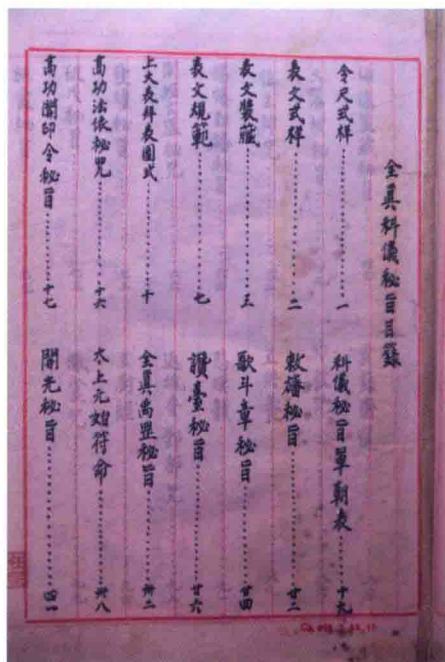 全真科儀秘旨目錄
令尺式样………一
科儀秘旨單朝表………十九
表文式样………二
敕旛秘旨………廿二
表文裝藏………三
歌斗章秘旨………廿四
表文規範………七
讚臺秘旨………廿六
上大表拜表圖式………十
全真禹罡秘旨………卅二
高功法依秘咒………十六
太上元始符命………卅八
高功開印令秘旨………十七
開光秘旨………四一